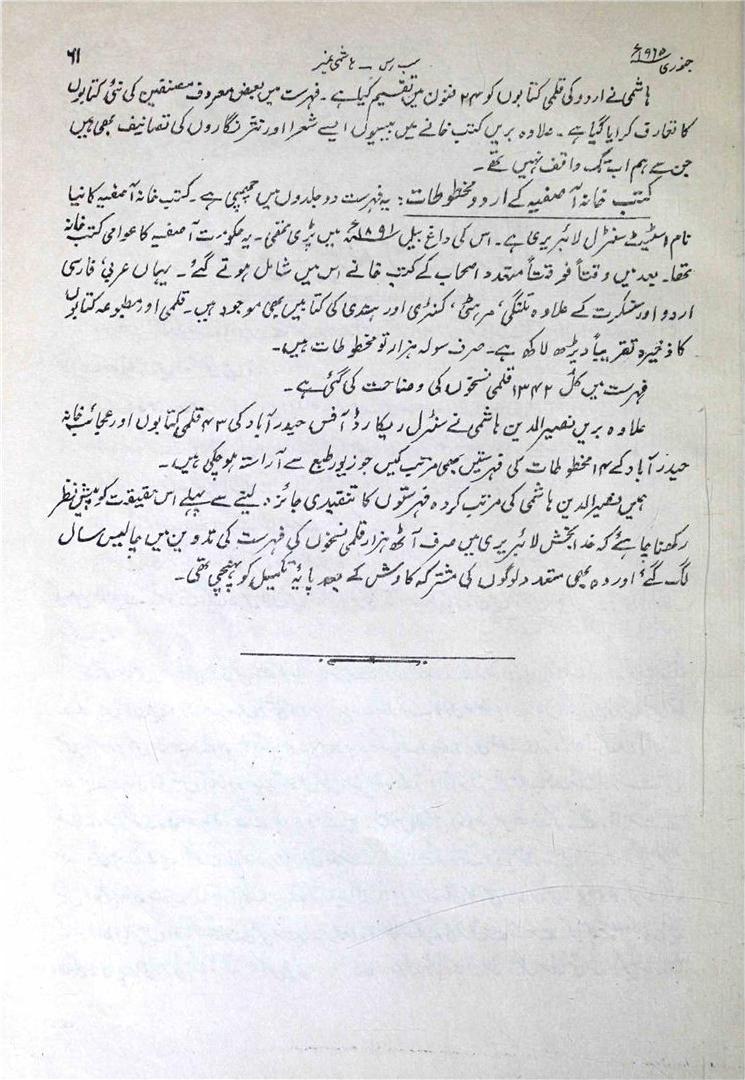 جنوری ۱۹۶۵ء سب رس ـ ہاشمی نمبر ۶۱
ہاشمی نے اردو کی قلمی کتابوں کو ۲۴ فنون میں تقسیم کیا ہے ۔ فہرست میں بعض معروف مصنفین کی نئی کتابوں
کا تعارف کرایا گیا ہے ۔ علاوہ بریں کتب خانے میں بیسیوں ایسے شعرا اور نثر نگاروں کی تصانیف بھی ہیں
جن سے ہم اب تک واقف نہیں تھے ۔
کتب خانہ آصفیہ کے اردو مخطوطات : یہ فہرست دو جلدوں میں چھپی ہے ۔ کتب خانہ آصفیہ کا نیا
نام اسٹیٹ سنٹرل لائبریری ہے ۔ اس کی داغ بیل ۱۸۹۱ء میں پڑی تھی ۔ یہ حکومت آصفیہ کا عوامی کتب خانہ
تھا ۔ بعد میں وقتاً فوقتاً متعدد اصحاب کے کتب خانے اس میں شامل ہوتے گئے ۔ یہاں عربی، فارسی
اردو اور سنسکرت کے علاوہ تلنگی، مرہٹی، کنٹری اور ہندی کی کتابیں بھی موجود ہیں ۔ قلمی او مطبوعہ کتابوں
کا ذخیرہ تقریباً دیڑھ لاکھ ہے ۔ صرف سولہ ہزار تو مخطوطات ہیں ۔
فہرست میں کل ۱۳۴۲ قلمی نسخوں کی وضاحت کی گئی ہے ۔
علاوہ بریں نصیرالدین ہاشمی نے سنٹرل ریکارڈ آفس حیدرآباد کی ۴۳ قلمی کتابوں اور عجائب خانہ
حیدرآباد کے ۱۴ مخطوطات کی فہرستیں بھی مرتب کیں جو زیور طبع سے آراستہ ہو چکی ہیں ۔
ہمیں نصیرالدین ہاشمی کی مرتب کردہ فہرستوں کا تنقیدی جائزہ لینے سے پہلے اس حقیقت کو پیش نظر
رکھنا چاہئے کہ خدا بخش لائبریری میں صرف آٹھ ہزار قلمی نسخوں کی فہرست کی تدوین میں چالیس سال
لگ گئے، اور وہ بھی متعدد لوگوں کی مشترکہ کاوش کے بعد پایۂ تکمیل کو پہنچی تھی ۔